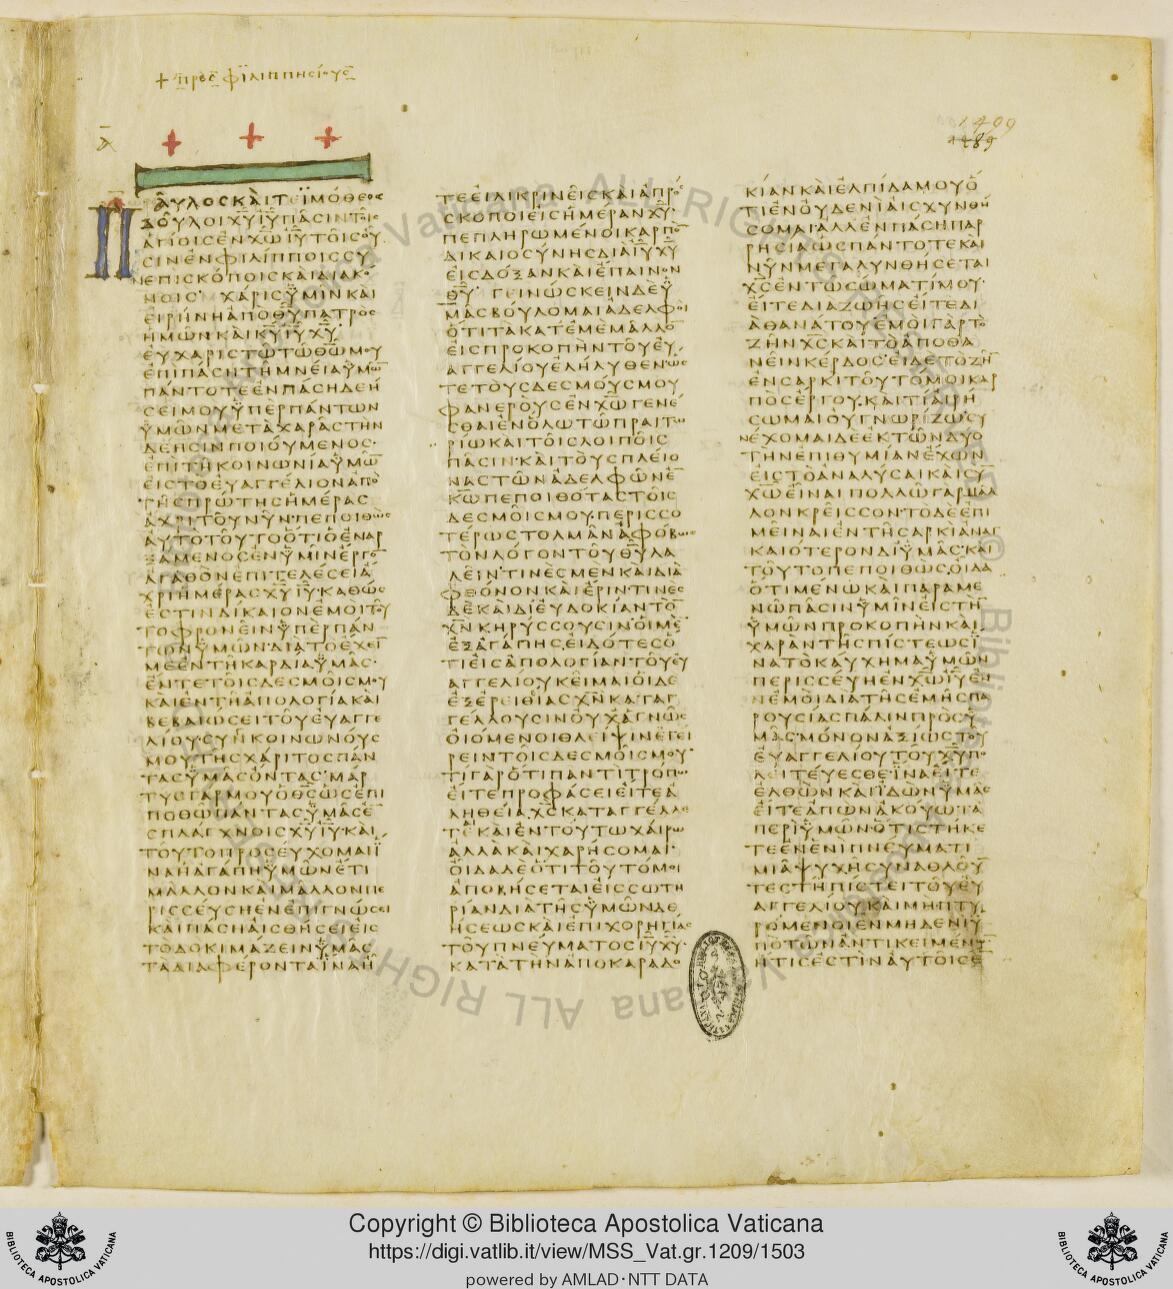 + προς φιλιππησιους
Α
1499
1489
ΠΑΥΛΟΣΚΑΙΤΕΙΜΟΘΕΟΣ
ΔΟΥΛΟΙΧΥΙΥΠΑΣΙΝΤΟΙΣ
ΑΓΙΟΙΣΕΝΧΩΙΥΤΟΙΣΟΥ
ΣΙΝΕΝΦΙΛΙΠΠΟΙΣΣΥ
ΝΕΠΙΣΚΟΠΟΙΣΚΑΙΔΙΑΚΟ
ΝΟΙΣ ΧΑΡΙΣΥΜΙΝΚΑΙ
ΕΙΡΗΝΗΑΠΟΘΥΠΑΤΡΟΣ
ΗΜΩΝΚΑΙΚΥΙΥΧΥ
ΕΥΧΑΡΙΣΤΩΤΩΘΩΜΟΥ
ΕΠΙΠΑΣΗΤΗΜΝΕΙΑΥΜΩ
ΠΑΝΤΟΤΕΕΝΠΑΣΗΔΕΗ
ΣΕΙΜΟΥΥΠΕΡΠΑΝΤΩΝ
ΥΜΩΝΜΕΤΑΧΑΡΑΣΤΗΝ
ΔΕΗΣΙΝΠΟΙΟΥΜΕΝΟΣ
ΕΠΙΤΗΚΟΙΝΩΝΙΑΥΜΩ
ΕΙΣΤΟΕΥΑΓΓΕΛΙΟΝΑΠΟ
ΤΗΣΠΡΩΤΗΣΗΜΕΡΑΣ
ΑΧΡΙΤΟΥΝΥΝΠΕΠΟΙΘΩΣ
ΑΥΤΟΤΟΥΤΟΟΤΙΟΕΝΑΡ
ΞΑΜΕΝΟΣΕΝΥΜΙΝΕΡΓΟ
ΑΓΑΘΟΝΕΠΙΤΕΛΕΣΕΙΑ
ΧΡΙΗΜΕΡΑΣΧΥΙΥΚΑΘΩΣ
ΕΣΤΙΝΔΙΚΑΙΟΝΕΜΟΙΤΟΥ
ΤΟΦΡΟΝΕΙΝΥΠΕΡΠΑΝ
ΤΩΝΥΜΩΝΔΙΑΤΟΕΧΕΙ
ΜΕΕΝΤΗΚΑΡΔΙΑΥΜΑΣ
ΕΝΤΕΤΟΙΣΔΕΣΜΟΙΣΜΟΥ
ΚΑΙΕΝΤΗΑΠΟΛΟΓΙΑΚΑΙ
ΒΕΒΑΙΩΣΕΙΤΟΥΕΥΑΓΓΕ
ΛΙΟΥΣΥΓΚΟΙΝΩΝΟΥΣ
ΜΟΥΤΗΣΧΑΡΙΤΟΣΠΑΝ
ΤΑΣΥΜΑΣΟΝΤΑΣΜΑΡ
ΤΥΣΓΑΡΜΟΥΟΘΣΩΣΕΠΙ
ΠΟΘΩΠΑΝΤΑΣΥΜΑΣΕ
ΣΠΛΑΓΧΝΟΙΣΧΥΙΥΚΑΙ
ΤΟΥΤΟΠΡΟΣΕΥΧΟΜΑΙΙ
ΝΑΗΑΓΑΠΗΥΜΩΝΕΤΙ
ΜΑΛΛΟΝΚΑΙΜΑΛΛΟΝΠΕ
ΡΙΣΣΕΥΣΗΕΝΕΠΙΓΝΩΣΕΙ
ΚΑΙΠΑΣΗΑΙΣΘΗΣΕΙΕΙΣ
ΤΟΔΟΚΙΜΑΖΕΙΝΥΜΑΣ
ΤΑΔΙΑΦΕΡΟΝΤΑΙΝΑΗ
ΤΕΕΙΛΙΚΡΙΝΕΙΣΚΑΙΑΠΡΟ
ΣΚΟΠΟΙΕΙΣΗΜΕΡΑΝΧΥ
ΠΕΠΛΗΡΩΜΕΝΟΙΚΑΡΠΟ
ΔΙΚΑΙΟΣΥΝΗΣΔΙΑΙΥΧΥ
ΕΙΣΔΟΞΑΝΚΑΙΕΠΑΙΝΟΝ
ΘΥ ΓΕΙΝΩΣΚΕΙΝΔΕΥ
ΜΑΣΒΟΥΛΟΜΑΙΑΔΕΛΦΟΙ
ΟΤΙΤΑΚΑΤΕΜΕΜΑΛΛΟ
ΕΙΣΠΡΟΚΟΠΗΝΤΟΥΕΥ
ΑΓΓΕΛΙΟΥΕΛΗΛΥΘΕΝΩΣ
ΤΕΤΟΥΣΔΕΣΜΟΥΣΜΟΥ
ΦΑΝΕΡΟΥΣΕΝΧΩΓΕΝΕ
ΣΘΑΙΕΝΟΛΩΤΩΠΡΑΙΤΩ
ΡΙΩΚΑΙΤΟΙΣΛΟΙΠΟΙΣ
ΠΑΣΙΝΚΑΙΤΟΥΣΠΛΕΙΟ
ΝΑΣΤΩΝΑΔΕΛΦΩΝΕ
ΚΩΠΕΠΟΙΘΟΤΑΣΤΟΙΣ
ΔΕΣΜΟΙΣΜΟΥΠΕΡΙΣΣΟ
ΤΕΡΩΣΤΟΛΜΑΝΑΦΟΒΩΣ
ΤΟΝΛΟΓΟΝΤΟΥΘΥΛΑ
ΛΕΙΝΤΙΝΕΣΜΕΝΚΑΙΔΙΑ
ΦΘΟΝΟΝΚΑΙΕΡΙΝΤΙΝΕΣ
ΔΕΚΑΙΔΙΕΥΔΟΚΙΑΝΤΟ
ΧΝΚΗΡΥΣΣΟΥΣΙΝΟΙΜΕ
ΕΞΑΓΑΠΗΣΕΙΔΟΤΕΣΟ
ΤΙΕΙΣΑΠΟΛΟΓΙΑΝΤΟΥΕΥ
ΑΓΓΕΛΙΟΥΚΕΙΜΑΙΟΙΔΕ
ΕΞΕΡΕΙΘΙΑΣΧΝΚΑΤΑΓ
ΓΕΛΛΟΥΣΙΝΟΥΧΑΓΝΩΣ
ΟΙΟΜΕΝΟΙΘΛΕΙΨΙΝΕΓΕΙ
ΡΕΙΝΤΟΙΣΔΕΣΜΟΙΣΜΟΥ
ΤΙΓΑΡΟΤΙΠΑΝΤΙΤΡΟΠΩ
ΕΙΤΕΠΡΟΦΑΣΕΙΕΙΤΕΑ
ΛΗΘΕΙΑΧΣΚΑΤΑΓΓΕΛΛΕ
ΤΕΚΑΙΕΝΤΟΥΤΩΧΑΙΡΩ
ΑΛΛΑΚΑΙΧΑΡΗΣΟΜΑΙ
ΟΙΔΑΔΕΟΤΙΤΟΥΤΟΜΟΙ
ΑΠΟΒΗΣΕΤΑΙΕΙΣΣΩΤΗ
ΡΙΑΝΔΙΑΤΗΣΥΜΩΝΔΕ
ΗΣΕΩΣΚΑΙΕΠΙΧΟΡΗΓΙΑΣ
ΤΟΥΠΝΕΥΜΑΤΟΣΙΥΧΥ
ΚΑΤΑΤΗΝΑΠΟΚΑΡΑΔΟ
ΚΙΑΝΚΑΙΕΛΠΙΔΑΜΟΥΟ
ΤΙΕΝΟΥΔΕΝΙΑΙΣΧΥΝΘΗ
ΣΟΜΑΙΑΛΛΕΝΠΑΣΗΠΑΡ
ΡΗΣΙΑΩΣΠΑΝΤΟΤΕΚΑΙ
ΝΥΝΜΕΓΑΛΥΝΘΗΣΕΤΑΙ
ΧΣΕΝΤΩΣΩΜΑΤΙΜΟΥ
ΕΙΤΕΔΙΑΖΩΗΣΕΙΤΕΔΙ
ΑΘΑΝΑΤΟΥΕΜΟΙΓΑΡΤΟ
ΖΗΝΧΣΚΑΙΤΟΑΠΟΘΑ
ΝΕΙΝΚΕΡΔΟΣΕΙΔΕΤΟΖΗ
ΕΝΣΑΡΚΙΤΟΥΤΟΜΟΙΚΑΡ
ΠΟΣΕΡΓΟΥΚΑΙΤΙΑΙΡΗ
ΣΩΜΑΙΟΥΓΝΩΡΙΖΩΣΥ
ΝΕΧΟΜΑΙΔΕΕΚΤΩΝΔΥΟ
ΤΗΝΕΠΙΘΥΜΙΑΝΕΧΩΝ
ΕΙΣΤΟΑΝΑΛΥΣΑΙΚΑΙΣΥ
ΧΩΕΙΝΑΙΠΟΛΛΩΓΑΡΜΑΛ
ΛΟΝΚΡΕΙΣΣΟΝΤΟΔΕΕΠΙ
ΜΕΙΝΑΙΕΝΤΗΣΑΡΚΙΑΝΑΓ
ΚΑΙΟΤΕΡΟΝΔΙΥΜΑΣΚΑΙ
ΤΟΥΤΟΠΕΠΟΙΘΩΣΟΙΔΑ
ΟΤΙΜΕΝΩΚΑΙΠΑΡΑΜΕ
ΝΩΠΑΣΙΝΥΜΙΝΕΙΣΤΗ
ΥΜΩΝΠΡΟΚΟΠΗΝΚΑΙ
ΧΑΡΑΝΤΗΣΠΙΣΤΕΩΣΙ
ΝΑΤΟΚΑΥΧΗΜΑΥΜΩΝ
ΠΕΡΙΣΣΕΥΗΕΝΧΩΙΥΕΝ
ΕΜΟΙΔΙΑΤΗΣΕΜΗΣΠΑ
ΡΟΥΣΙΑΣΠΑΛΙΝΠΡΟΣΥ
ΜΑΣΜΟΝΟΝΑΞΙΩΣΤΟΥ
ΕΥΑΓΓΕΛΙΟΥΤΟΥΧΥΠΟ
ΛΕΙΤΕΥΕΣΘΕΙΝΑΕΙΤΕ
ΕΛΘΩΝΚΑΙΙΔΩΝΥΜΑΣ
ΕΙΤΕΑΠΩΝΑΚΟΥΩΤΑ
ΠΕΡΙΥΜΩΝΟΤΙΣΤΗΚΕ
ΤΕΕΝΕΝΙΠΝΕΥΜΑΤΙ
ΜΙΑΨΥΧΗΣΥΝΑΘΛΟΥ
ΤΕΣΤΗΠΙΣΤΕΙΤΟΥΕΥ
ΑΓΓΕΛΙΟΥΚΑΙΜΗΠΤΥ
ΡΟΜΕΝΟΙΕΝΜΗΔΕΝΙΥ
ΠΟΤΩΝΑΝΤΙΚΕΙΜΕΝΩ
ΗΤΙΣΕΣΤΙΝΑΥΤΟΙΣΕ
Copyright © Biblioteca Apostolica Vaticana
https://digi.vatlib.it/view/MSS_Vat.gr.1209/1503
powered by AMLAD·NTT DATA
BIBLIOTECA APOSTOLICA VATICANA
BIBLIOTECA APOSTOLICA VATICANA